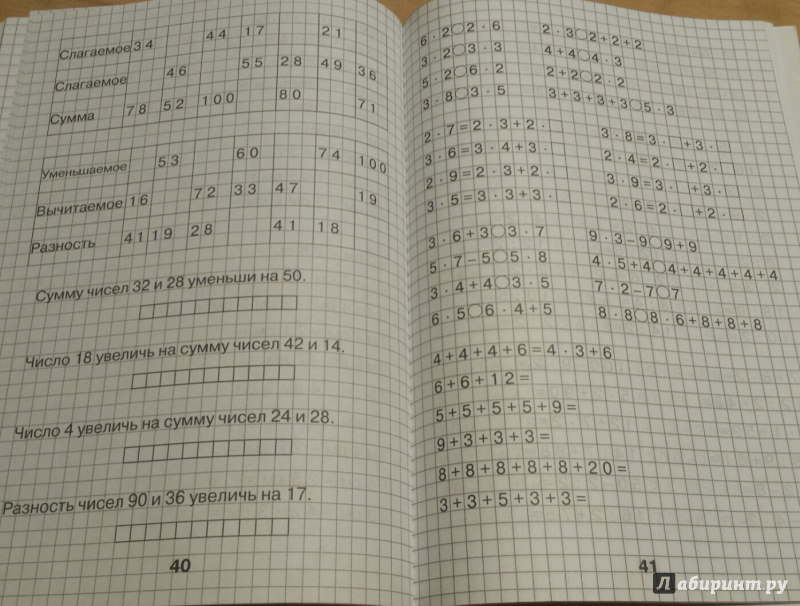 Слагаемое 34 44 17 21
Слагаемое 46 55 28 49 36
Сумма 78 52 100 80 71
Уменьшаемое 53 60 74 100
Вычитаемое 16 72 33 47 19
Разность 41 19 28 41 18
Сумму чисел 32 и 28 уменьши на 50.
Число 18 увеличь на сумму чисел 42 и 14.
Число 4 увеличь на сумму чисел 24 и 28.
Разность чисел 90 и 36 увеличь на 17.
40
6 · 2○2 · 6 2 · 3○2+2+2
3 · 2○3 · 3 4+4○4 · 3
5 · 2○6 · 2 2+2○2 · 2
3 · 8○3 · 5 3+3+3+3○5 · 3
2 · 7=2 · 3+2 · □ 3 · 8=3 · □+3 · □
3 · 6=3 · 4+3 · □ 2 · 4=2 · □+2 · □
2 · 9=2 · 3+2 · □ 3 · 9=3 · □+3 · □
3 · 5=3 · 3+3 · □ 2 · 6=2 · □+2 · □
3 · 6+3○3 · 7 9 · 3−9○9+9
5 · 7−5○5 · 8 4 · 5+4○4+4+4+4+4
3 · 4+4○3 · 5 7 · 2−7○7
6 · 5○6 · 4+5 8 · 8○8 · 6+8+8+8
4+4+4+6=4 · 3+6
6+6+12=
5+5+5+5+9=
9+3+3+3=
8+8+8+8+8+20=
3+3+5+3+3=
41
Лабиринт.ру